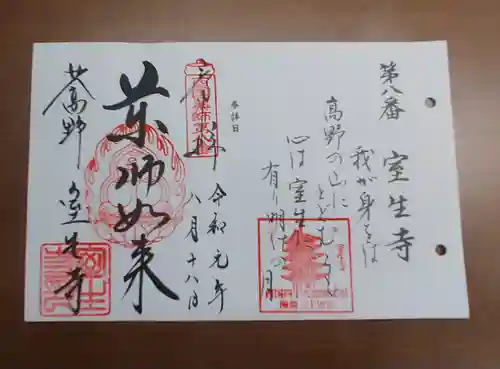 第八番 室生寺
我が身をば
高野の山にとどむとも
心は室生に
有り明けの月
参拝日
奉拝
令和元年
八月十八日
薬師如来
女人高野
室生寺